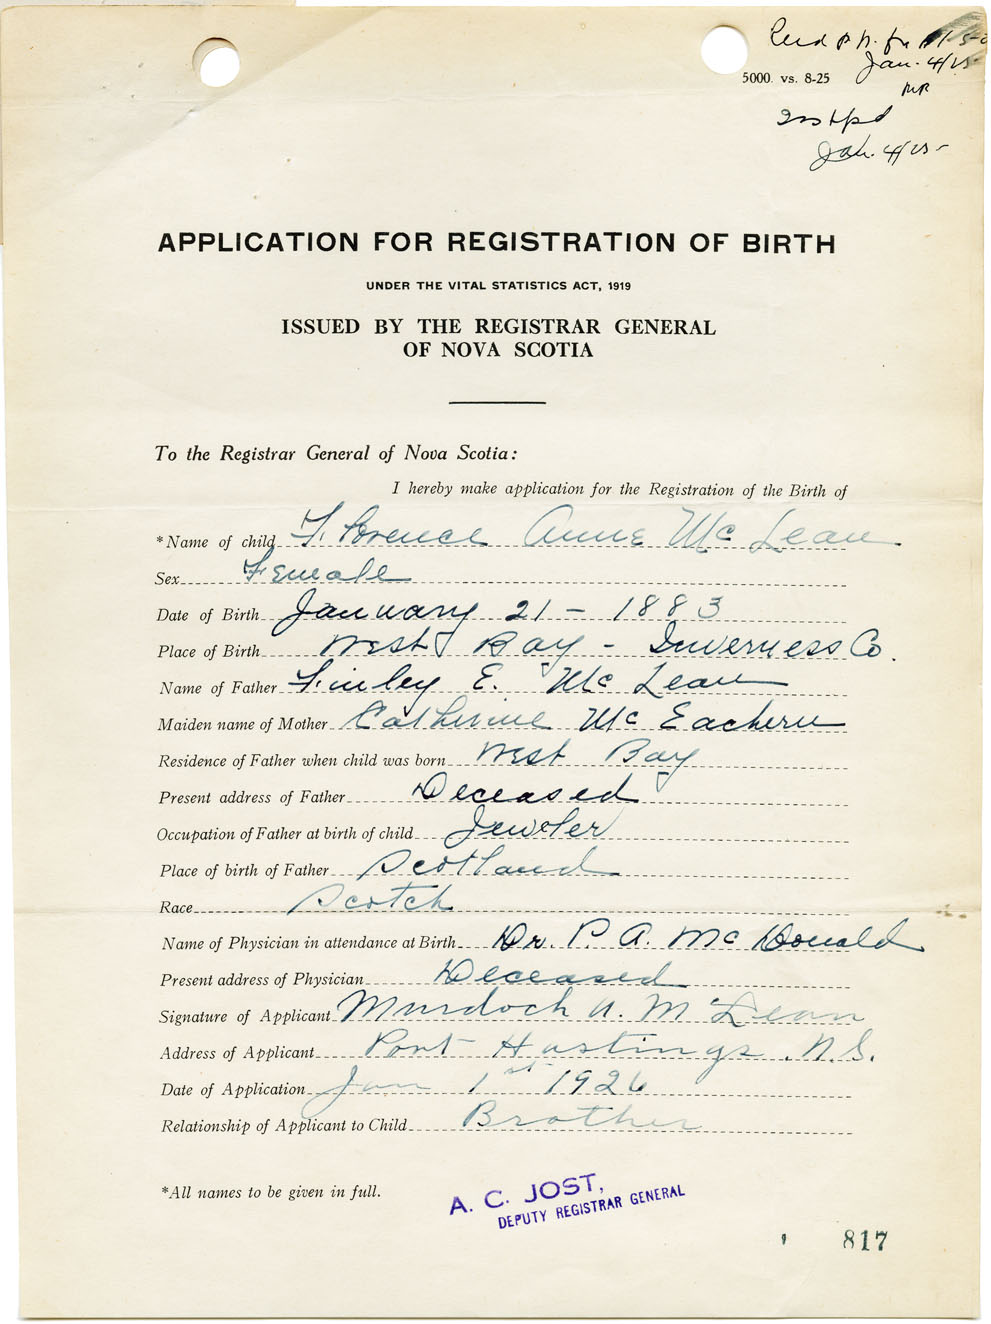 Jan. 4/25
5000. vs. 8-25
MR
Jan. 4/25
APPLICATION FOR REGISTRATION OF BIRTH
UNDER THE VITAL STATISTICS ACT, 1919
ISSUED BY THE REGISTRAR GENERAL
OF NOVA SCOTIA
To the Registrar General of Nova Scotia:
I hereby make application for the Registration of the Birth of
*Name of child Florence Anne McLean
Sex Female
Date of Birth January 21 - 1883
Place of Birth West Bay - Inverness Co.
Name of Father Finley E. McLean
Maiden name of Mother Catherine McEachern
Residence of Father when child was born West Bay
Present address of Father Deceased
Occupation of Father at birth of child Jeweler
Place of birth of Father Scotland
Race Scotch
Name of Physician in attendance at Birth Dr. P. A. McDonald
Present address of Physician Deceased
Signature of Applicant Murdoch A. McLean
Address of Applicant Port Hastings, N.S.
Date of Application Jan 1st 1926
Relationship of Applicant to Child Brother
*All names to be given in full.
A. C. JOST,
DEPUTY REGISTRAR GENERAL
817